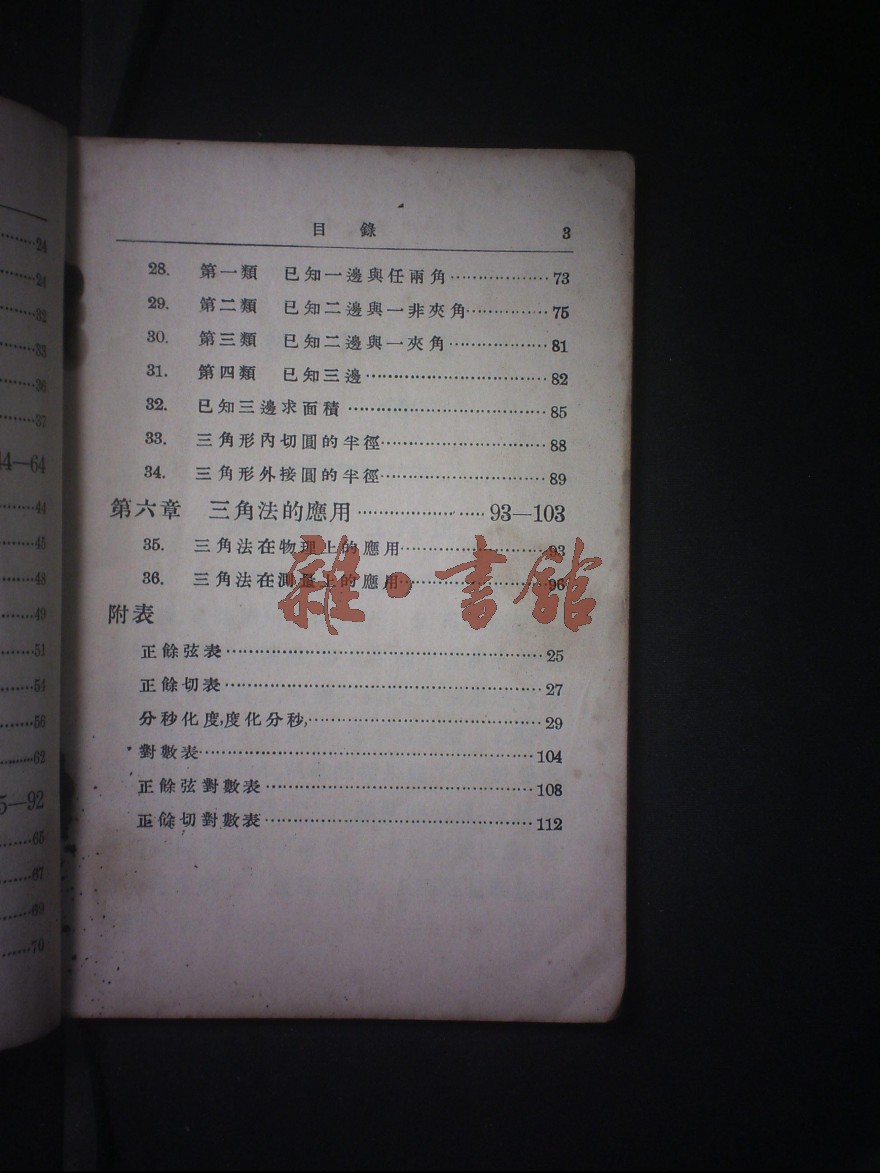 24
24
32
33
36
37
44—64
44
45
48
49
51
54
56
62
5—92
65
67
69
70
目錄 3
28. 第一類 已知一邊與任兩角 73
29. 第二類 已知二邊與一非夾角 75
30. 第三類 已知二邊與一夾角 81
31. 第四類 已知三邊 82
32. 已知三邊求面積 85
33. 三角形內切圓的半徑 88
34. 三角形外接圓的半徑 89
第六章 三角法的應用 93—103
35. 三角法在物理上的應用 93
36. 三角法在測量上的應用 96
雜·書館
附表
正餘弦表 25
正餘切表 27
分秒化度,度化分秒, 29
對數表 104
正餘弦對數表 108
正餘切對數表 112